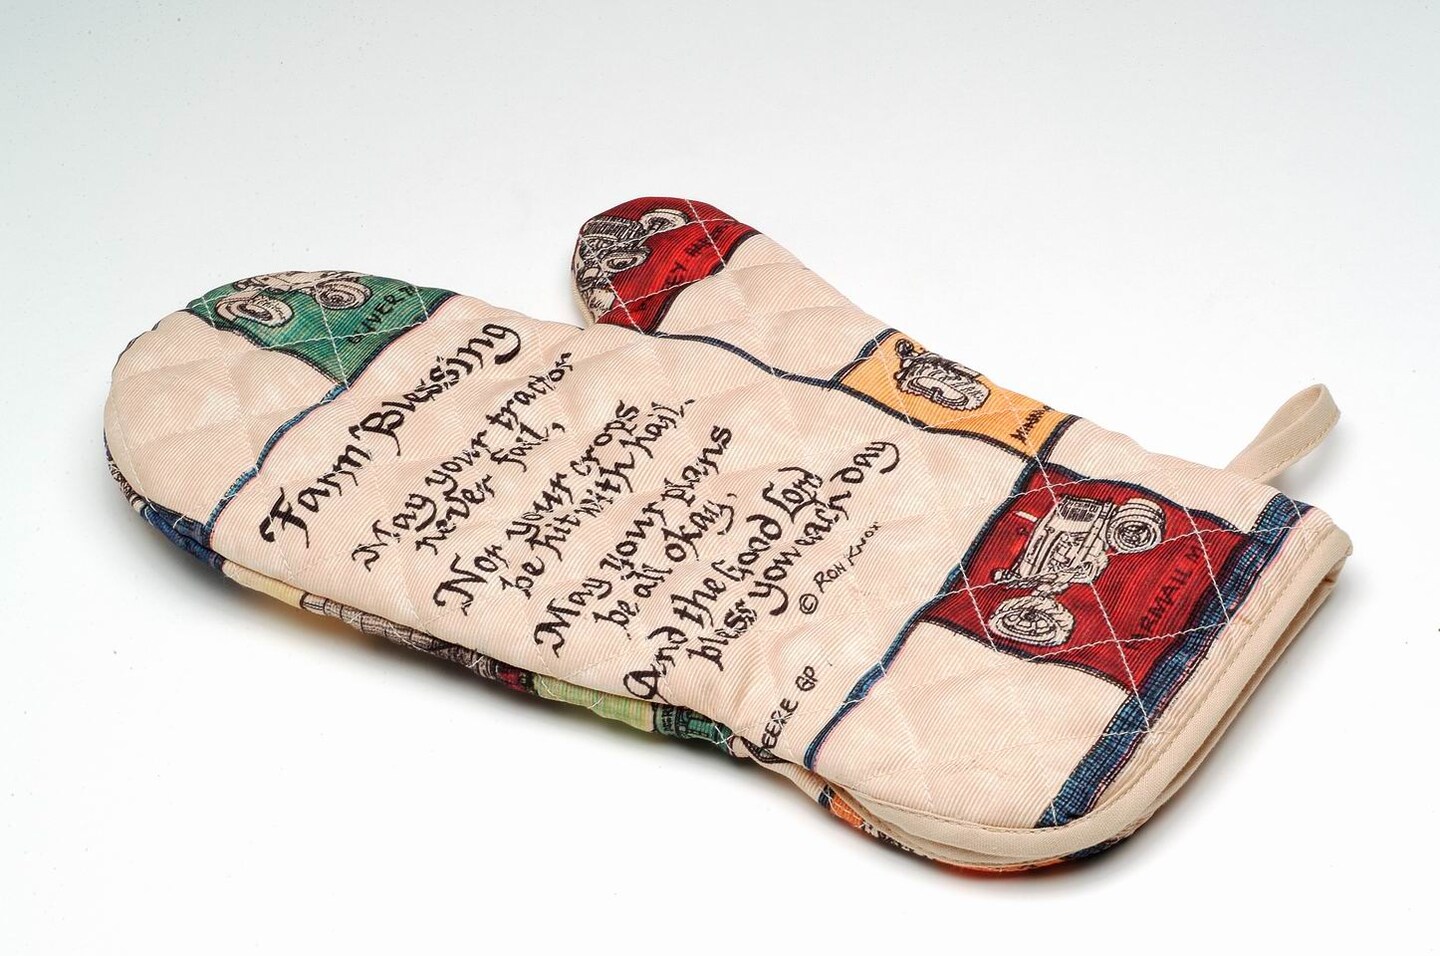 "Farm Blessing
May your tractor
never fail,
Nor your crops
be hit with hail.
May your plans
be all okay,
And the Good Lord
bless you each day
© RON KNOX
DEERE GP
OLIVER
FARMALL M